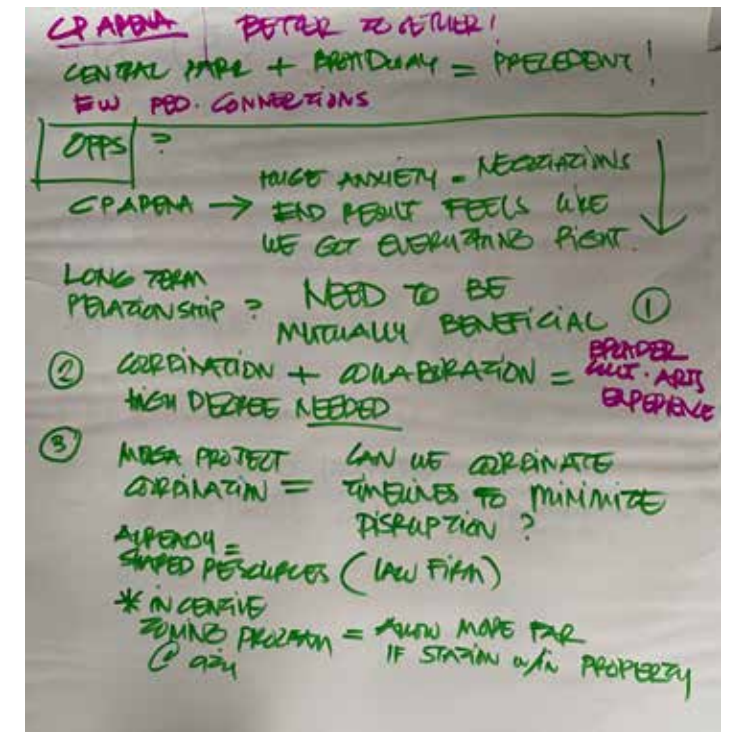 CP ARENA | BETTER TOGETHER!
CENTRAL PARK + BROADWAY = PRECEDENT!
EW PED. CONNECTIONS
OPPS ?
HUGE ANXIETY = NEGOTIATIONS
CP ARENA → END RESULT FEELS LIKE
WE GOT EVERYTHING RIGHT.
LONG TERM
RELATIONSHIP ? NEED TO BE
MUTUALLY BENEFICIAL ①
② COORDINATION + COLLABORATION = BROADER
HIGH DEGREE NEEDED CULT. ARTS
EXPERIENCE
③ MEGA PROJECT CAN WE COORDINATE
COORDINATION = TIMELINES TO MINIMIZE
DISRUPTION ?
ALREADY =
SHARED RESOURCES (LAW FIRM)
* INCENTIVE
ZONING PROGRAM = ALLOW MORE FAR
@ CITY IF STATION W/IN PROPERTY